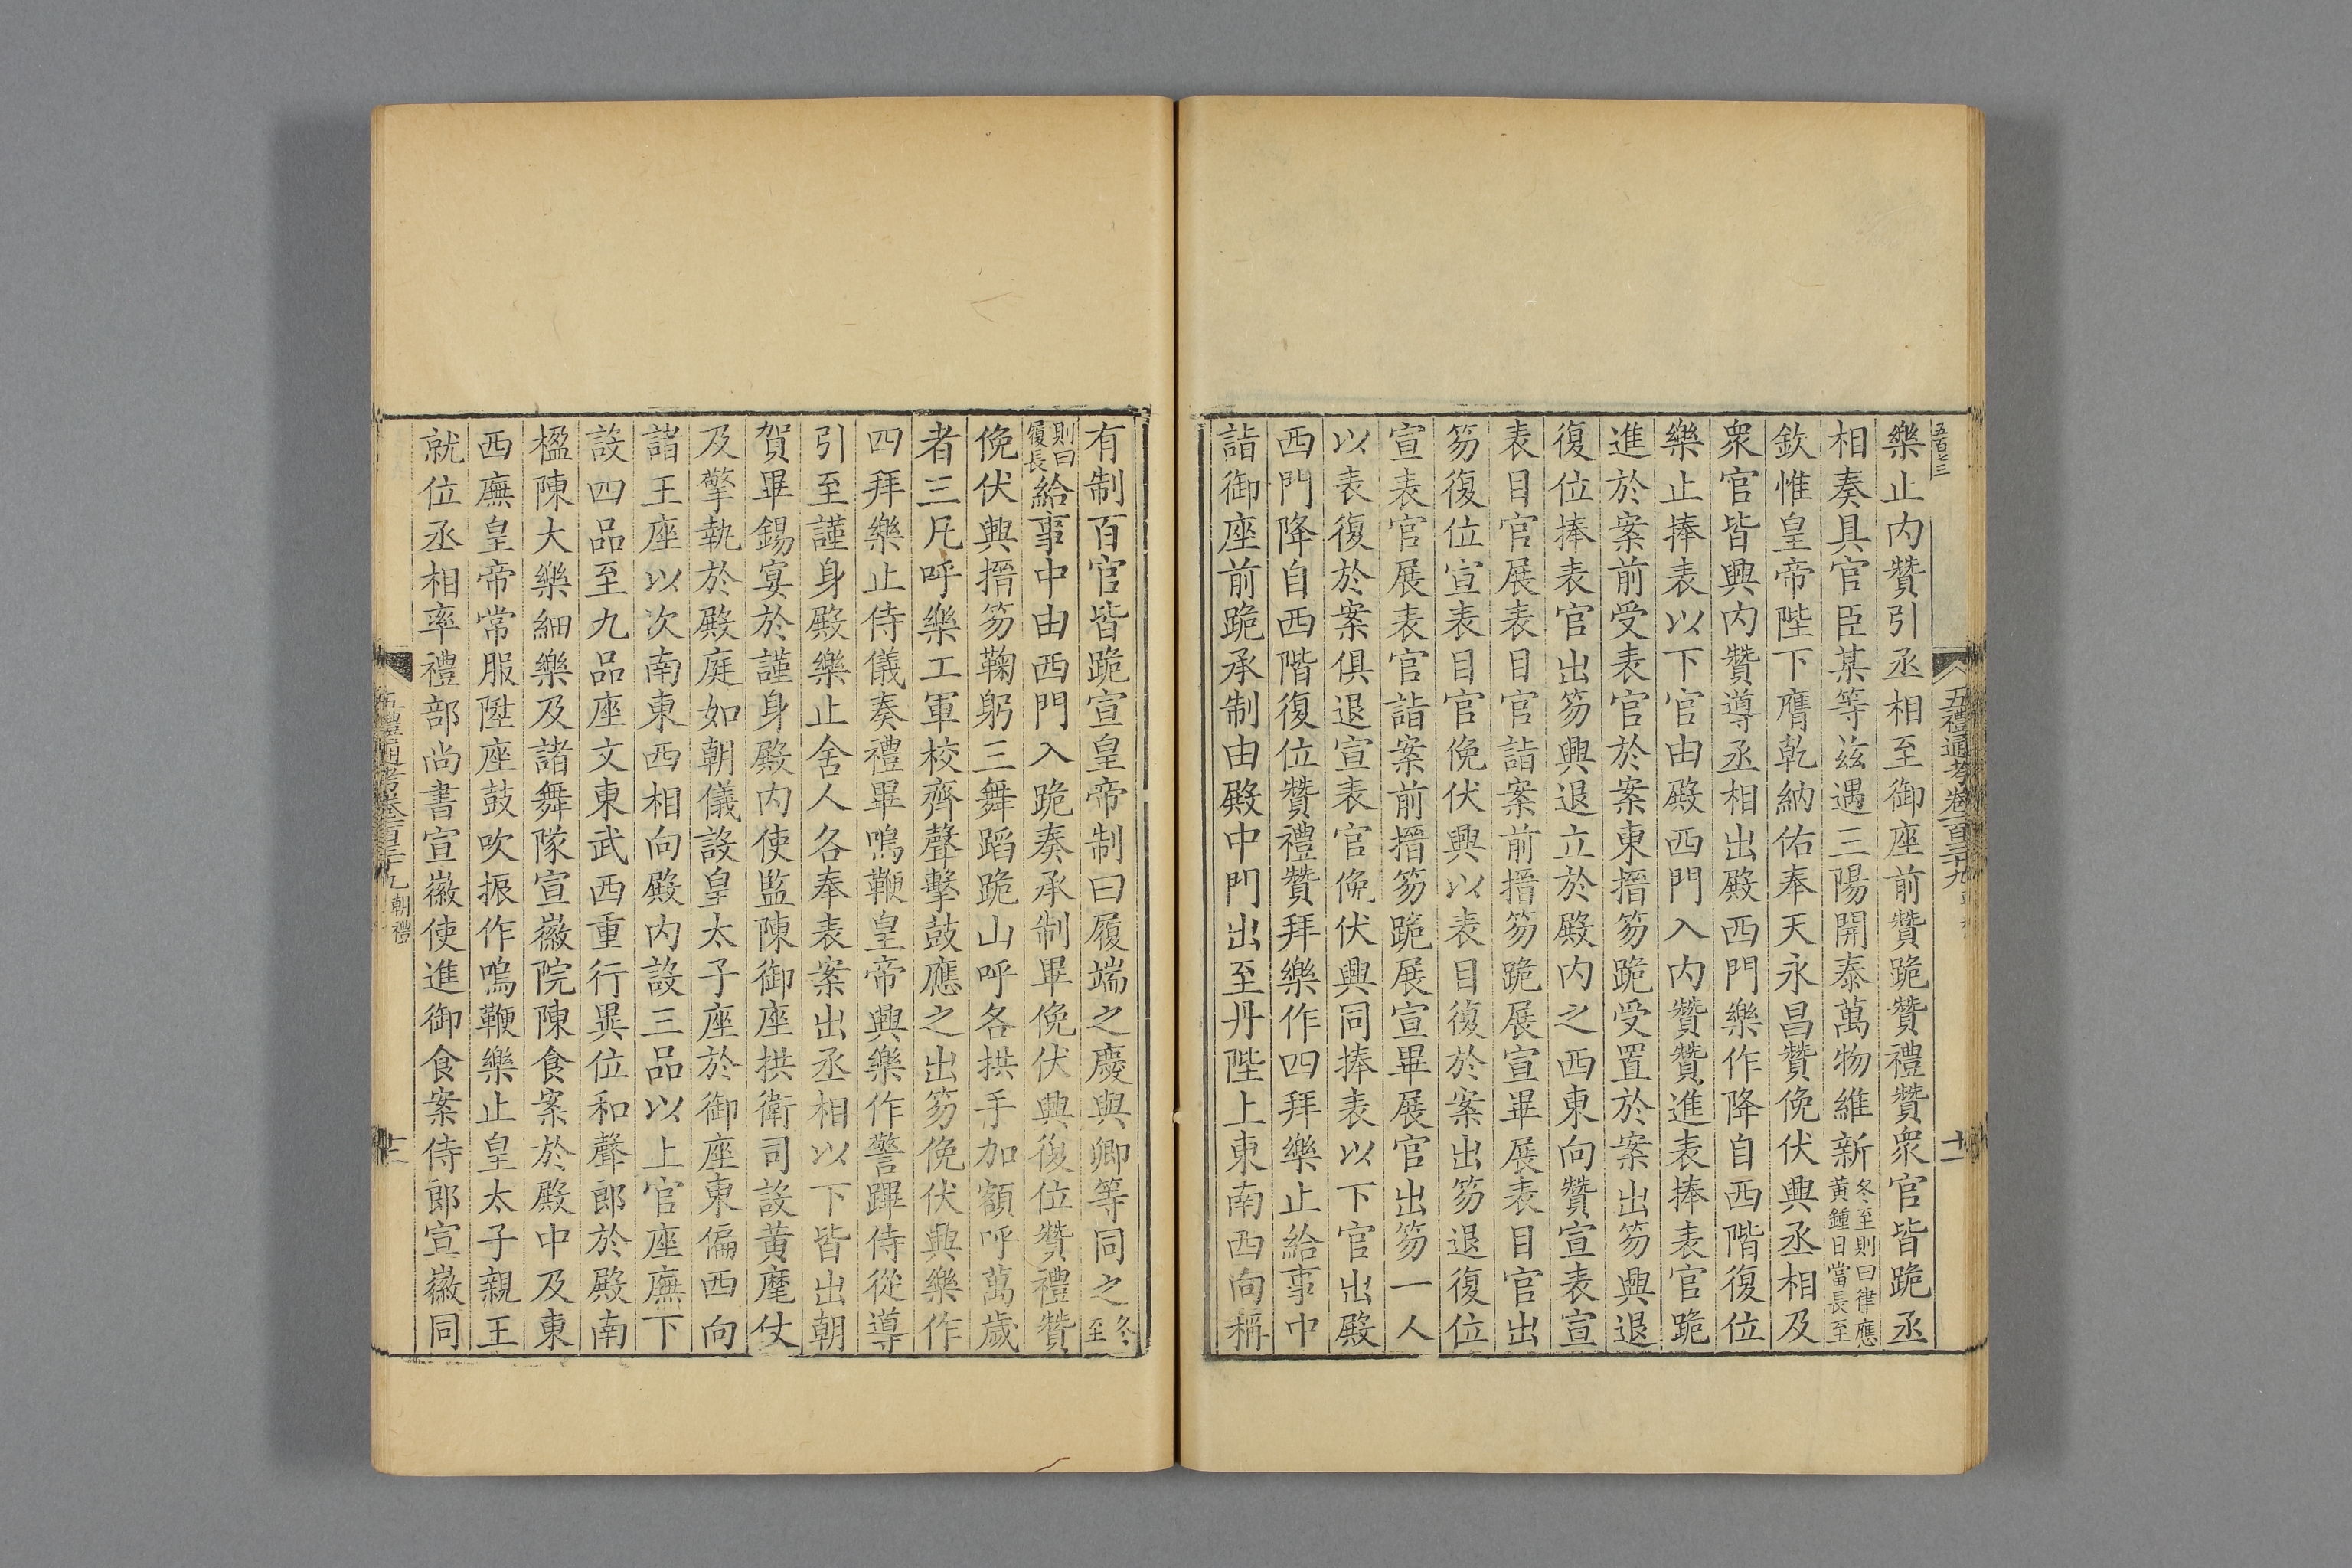 五百七三
五禮通考卷一百三十九
十一
樂止内贊引丞相至御座前贊跪贊禮贊衆官皆跪丞
相奏具官臣某等兹遇三陽開泰萬物維新冬至則曰律應黃鍾日當長至
欽惟皇帝陛下膺乾納佑奉天永昌贊俛伏興丞相及
衆官皆興内贊導丞相出殿西門樂作降自西階復位
樂止捧表以下官由殿西門入内贊贊進表捧表官跪
進於案前受表官於案東搢笏跪受置於案出笏興退
復位捧表官出笏興退立於殿内之西東向贊宣表宣
表目官展表目官詣案前搢笏跪展宣畢展表目官出
笏復位宣表目官俛伏興以表目復於案出笏退復位
宣表官展表官詣案前搢笏跪展宣畢展官出笏一人
以表復於案俱退宣表官俛伏興同捧表以下官出殿
西門降自西階復位贊禮贊拜樂作四拜樂止給事中
詣御座前跪承制由殿中門出至丹陛上東南西向稱
有制百官皆跪宣皇帝制曰履端之慶與卿等同之冬至
則曰履長給事中由西門入跪奏承制畢俛伏興復位贊禮贊
俛伏興搢笏鞠躬三舞蹈跪山呼各拱手加額呼萬歲
者三凡呼樂工軍校齊聲擊鼓應之出笏俛伏興樂作
四拜樂止侍儀奏禮畢鳴鞭皇帝興樂作警蹕侍從導
引至謹身殿樂止舍人各奉表案出丞相以下皆出朝
賀畢錫宴於謹身殿内使監陳御座拱衛司設黃麾仗
及擎執於殿庭如朝儀設皇太子座於御座東偏西向
諸王座以次南東西相向殿内設三品以上官座廡下
設四品至九品座文東武西重行異位和聲郎於殿南
楹陳大樂細樂及諸舞隊宣徽院陳食案於殿中及東
西廡皇帝常服陞座鼓吹振作鳴鞭樂止皇太子親王
就位丞相率禮部尚書宣徽使進御食案侍郎宣徽同
五禮通考卷一百三十九 朝禮